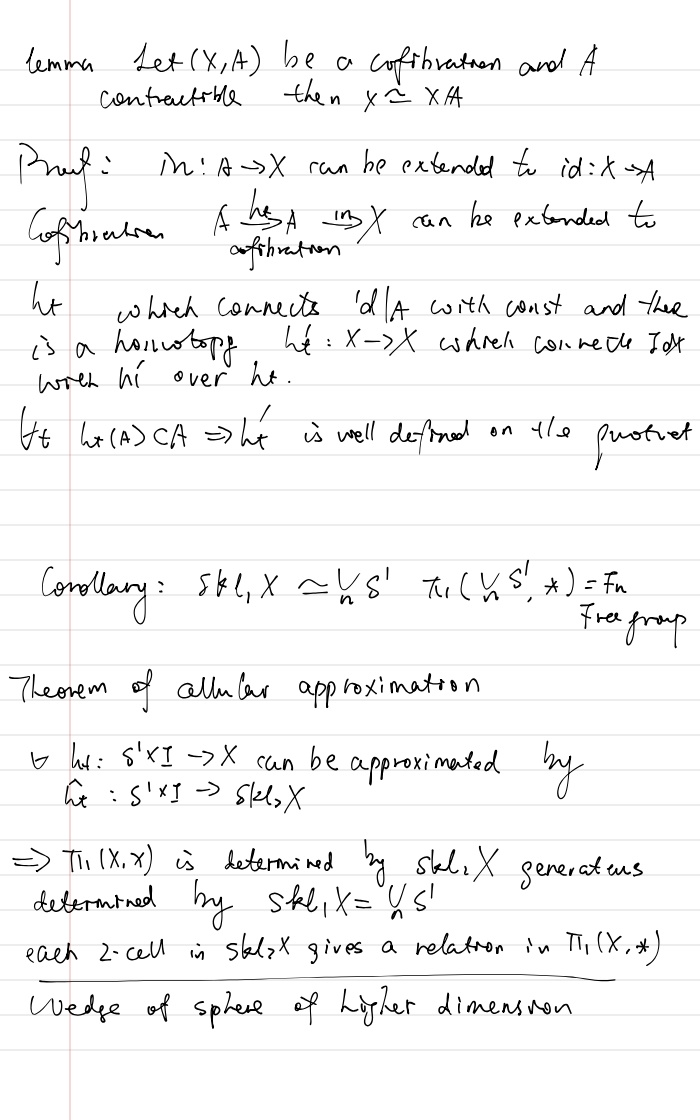 lemma Let (X,A) be a cofibration and A
contractible then X ≃ X/A
Proof: in: A → X can be extended to id: X → A
Cofibration A \xrightarrow{ht} A \xrightarrow{in} X can be extended to
cofibration
ht which connects id|A with const and there
is a homotopy ht' : X → X which connects Idx
with h1' over ht.
∀t ht(A) ⊂ A ⇒ ht' is well defined on the quotient
Corollary: skl₁ X ≃ ∨ₙ S¹ π₁(∨ₙ S¹, *) = Fn
Free group
Theorem of cellular approximation
∀ ht: S¹×I → X can be approximated by
ĥt : S¹×I → Skl₂X
⇒ π₁(X,x) is determined by skl₂X generators
determined by skl₁X = ∨ₙ S¹
each 2-cell in skl₂X gives a relation in π₁(X,*)
Wedge of sphere of higher dimension